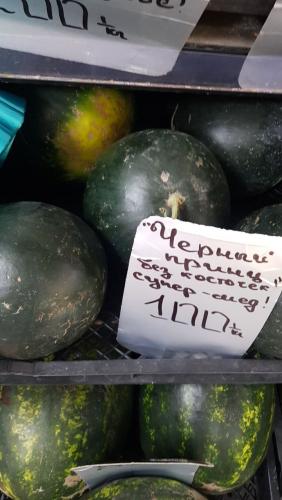 100 1/кг
"Черный
принц"
без косточек!
супер-мёд!
100 1/кг